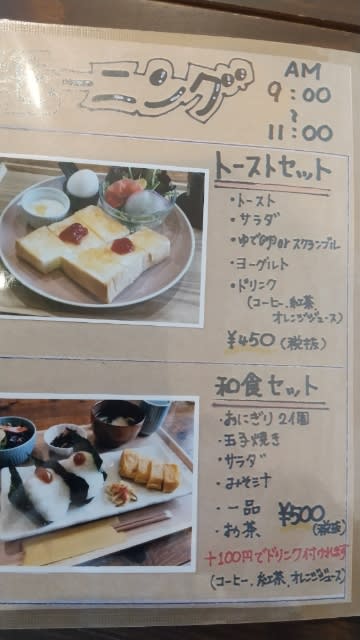 モーニング
AM
9:00
~
11:00
トーストセット
・トースト
・サラダ
・ゆで卵 or スクランブル
・ヨーグルト
・ドリンク
(コーヒー、紅茶
オレンジジュース)
¥450 (税抜)
和食セット
・おにぎり 2個
・玉子焼き
・サラダ
・みそ汁
・一品
・お茶
¥500
(税抜)
+100円でドリンク付けれます
(コーヒー、紅茶、オレンジジュース)